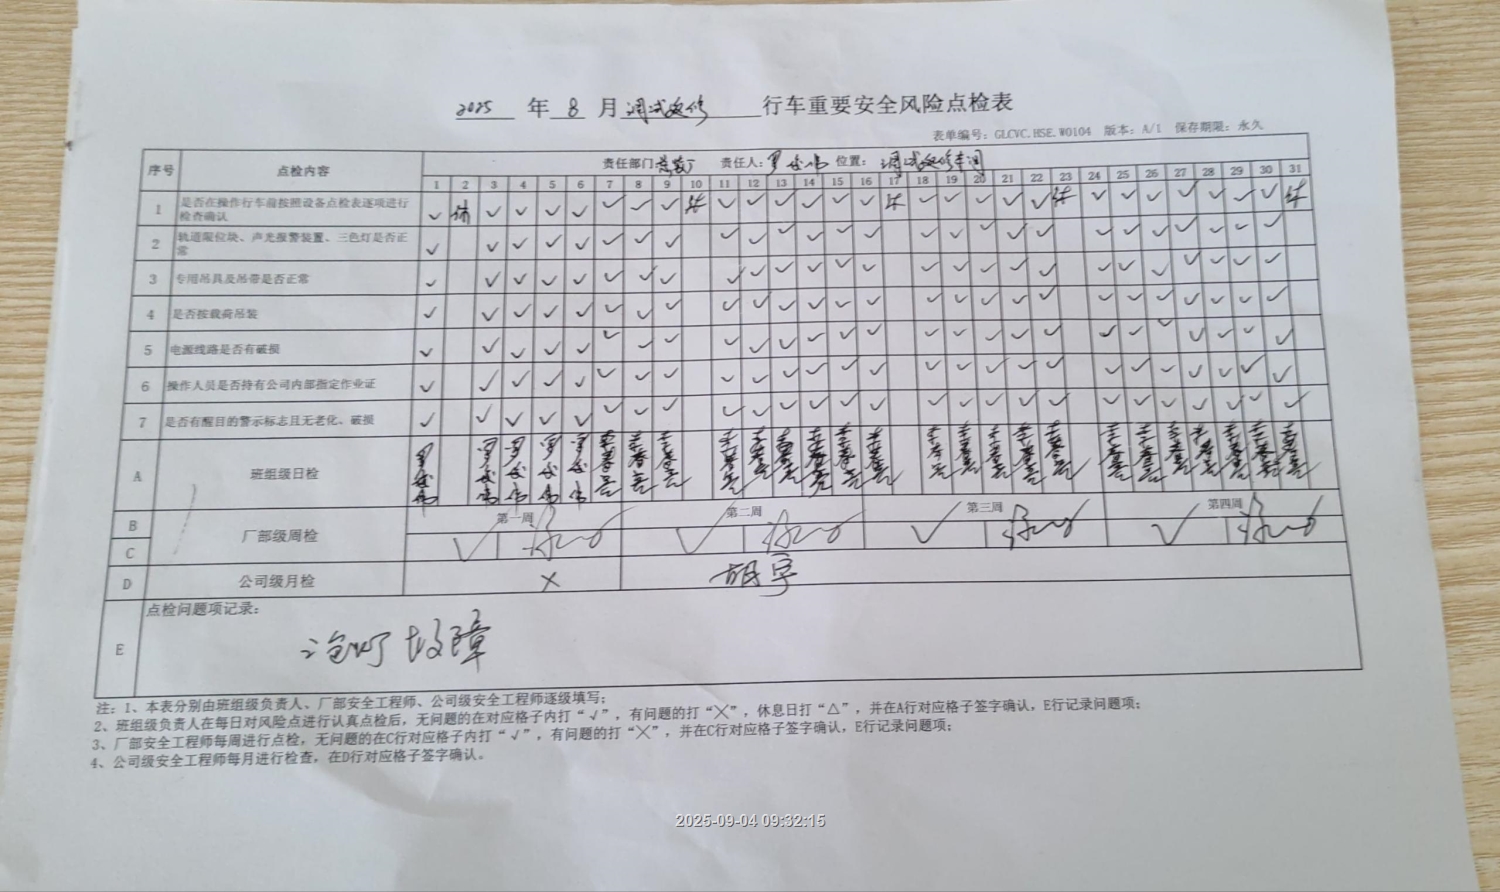 2025 年 8 月 调试返修 行车重要安全风险点检表
表单编号: GLCVC.HSE.W0104 版本: A/1 保存期限: 永久
序号 点检内容 责任部门 责任人: 位置: 调试返修车间
1 2 3 4 5 6 7 8 9 10 11 12 13 14 15 16 17 18 19 20 21 22 23 24 25 26 27 28 29 30 31
1 是否在操作行车前按照设备点检表逐项进行检查确认 ✓ 休 ✓ ✓ ✓ ✓ ✓ ✓ ✓ 休 ✓ ✓ ✓ ✓ ✓ ✓ 休 ✓ ✓ ✓ ✓ ✓ 休 ✓ ✓ ✓ ✓ ✓ ✓ ✓ 休
2 轨道限位块、声光报警装置、三色灯是否正常
3 专用吊具及吊带是否正常
4 是否按载荷吊装
5 电源线路是否有破损
6 操作人员是否持有公司内部指定作业证
7 是否有醒目的警示标志且无老化、破损
A 班组级日检
B 厂部级周检 第一周 第二周 第三周 第四周
C ✓ ✓ ✓ ✓
D 公司级月检 × 胡宇
E 点检问题项记录:
故障
注: 1、本表分别由班组级负责人、厂部安全工程师、公司级安全工程师逐级填写;
2、班组级负责人在每日对风险点进行认真点检后, 无问题的在对应格子内打“√”, 有问题的打“╳”, 休息日打“△”, 并在A行对应格子签字确认, E行记录问题项;
3、厂部安全工程师每周进行点检, 无问题的在C行对应格子内打“√”, 有问题的打“╳”, 并在C行对应格子签字确认, E行记录问题项;
4、公司级安全工程师每月进行检查, 在D行对应格子签字确认。
2025-09-04 09:32:15